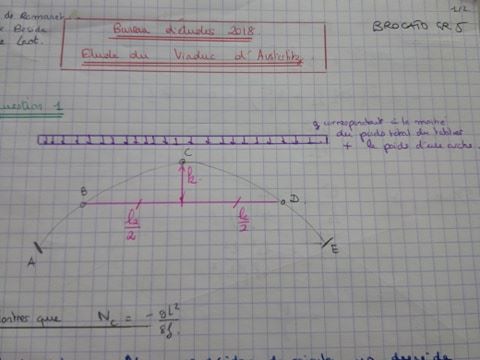 de Romanet
de Besida
Bureau d'études 2018
Etude du Viaduc d'Austerlitz.
1/2
BROCATO GR 5
Question 1
q correspondant à la moitié
du poids total du tablier
+ le poids d'une arche.
C
B
h
D
l/2
l/2
A
E
ontrer que N_C = - gl²/8f